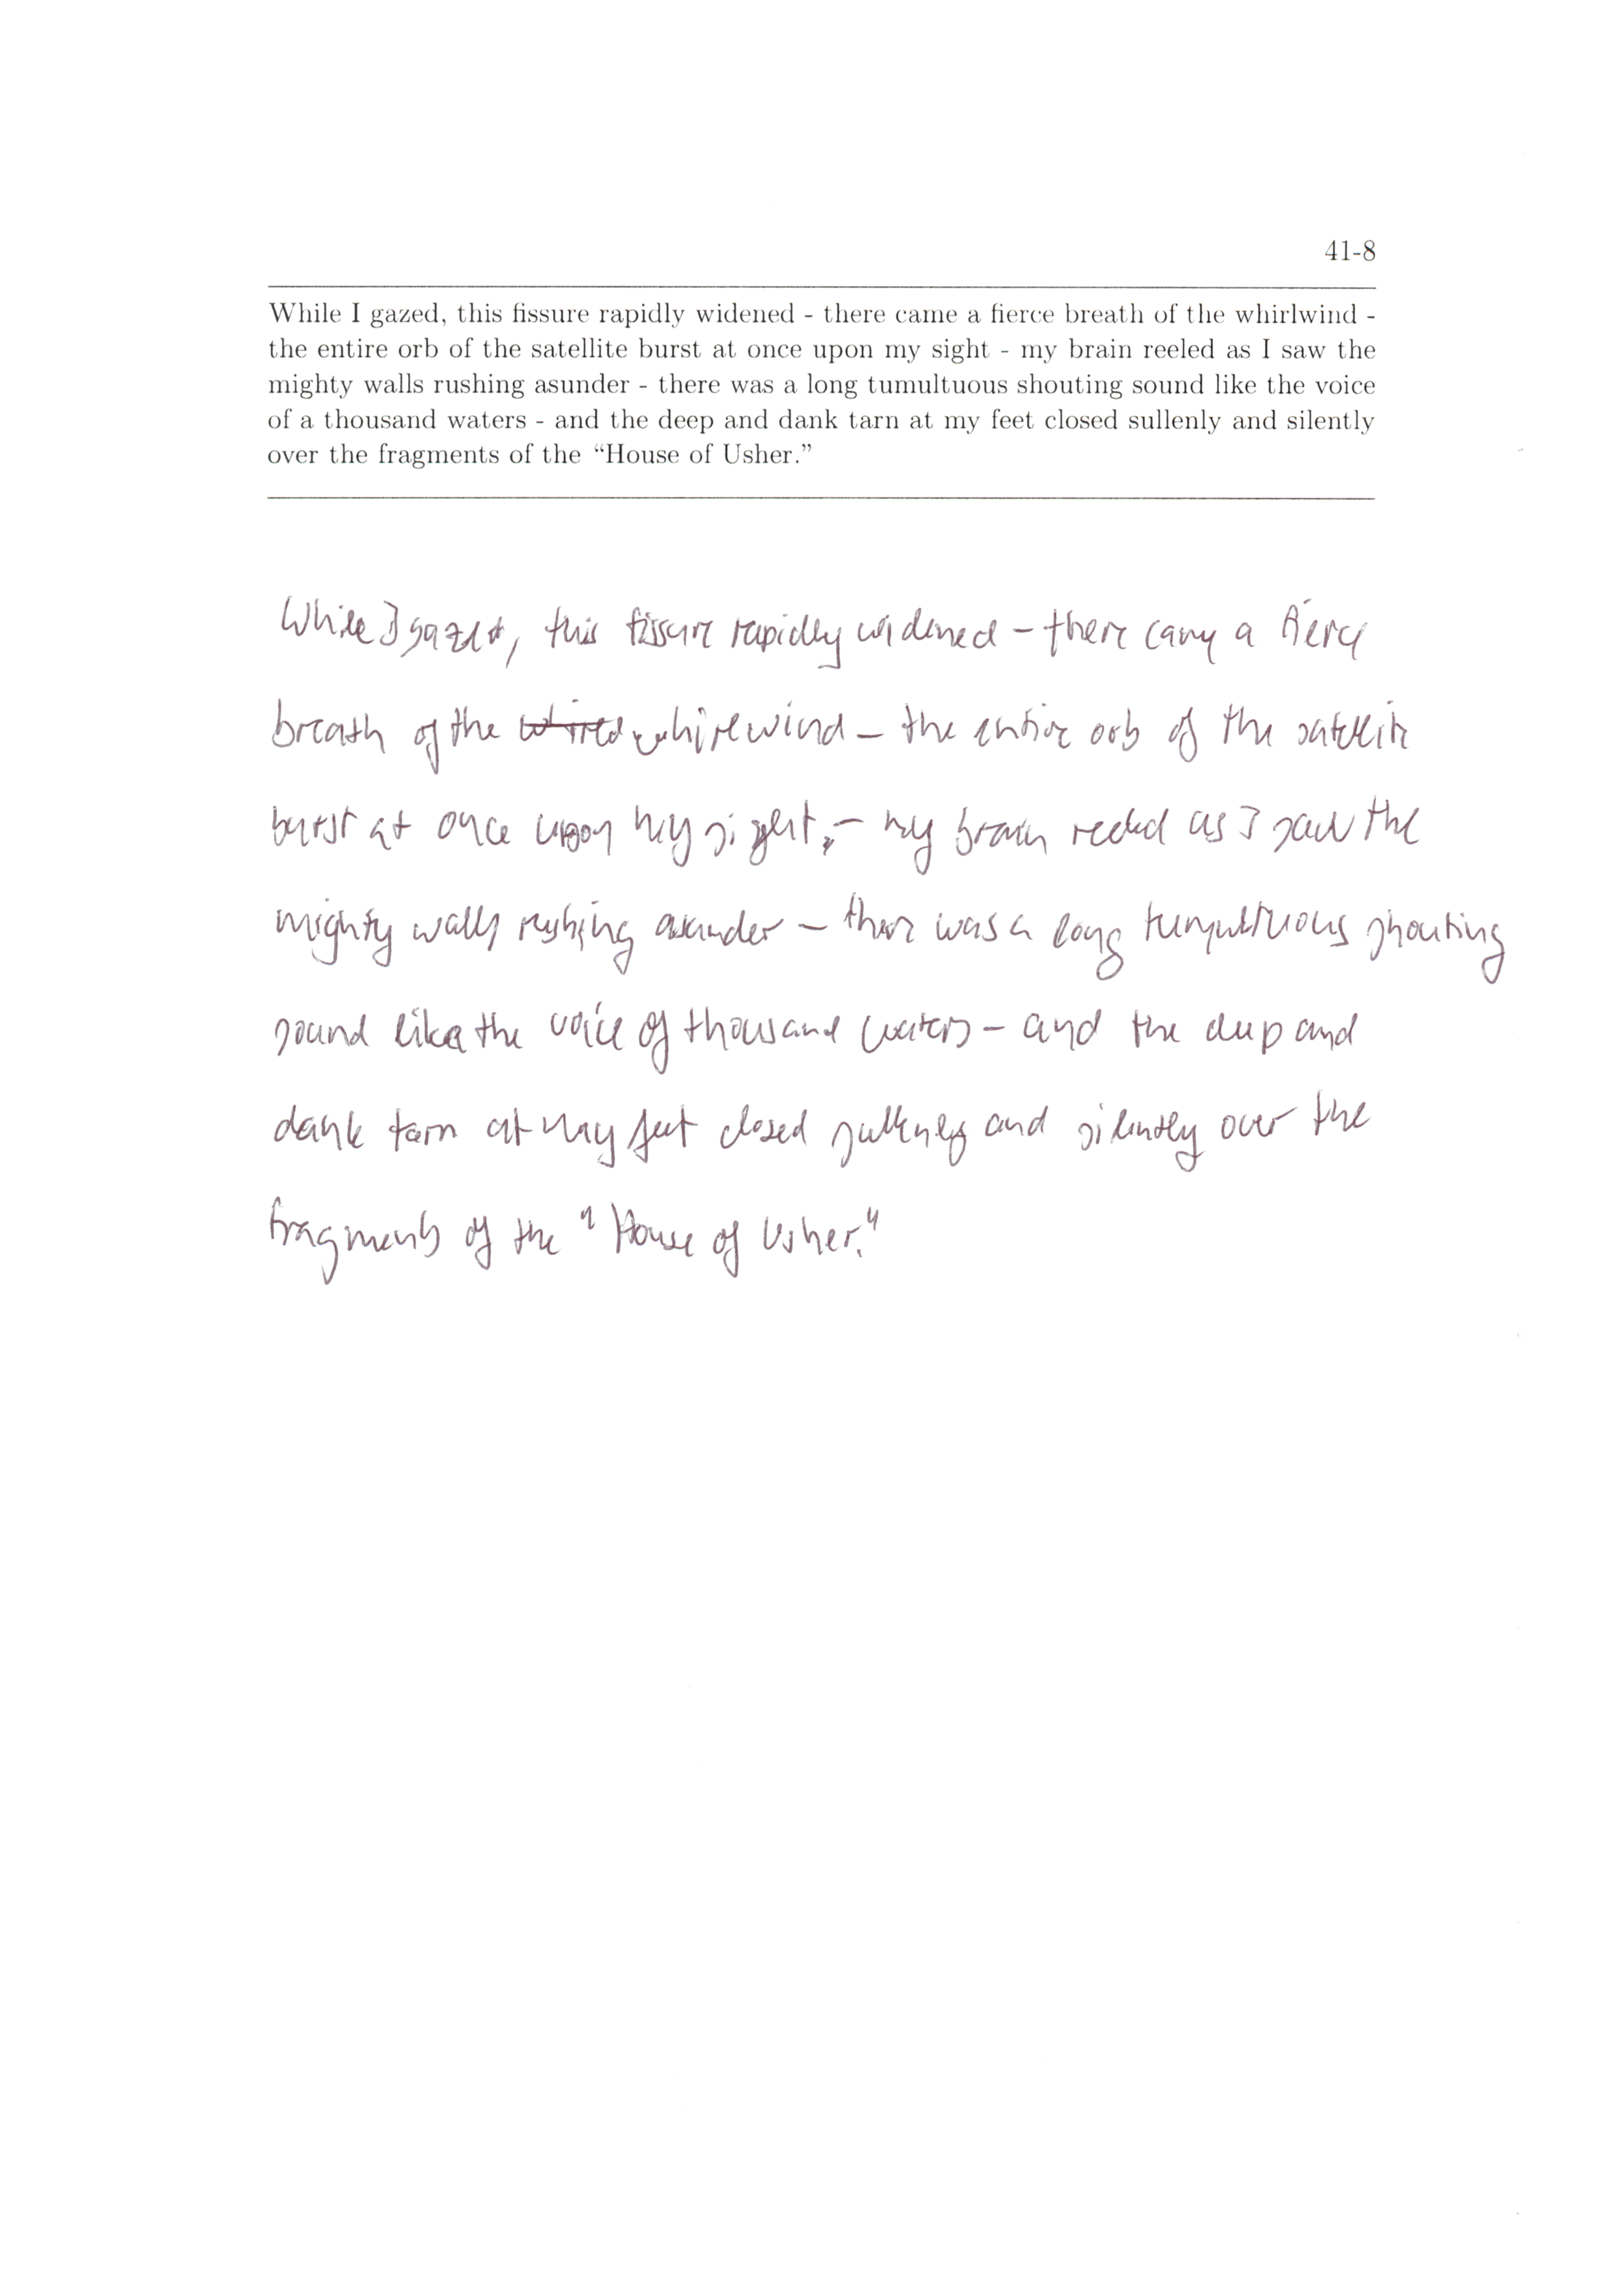 41-8
While I gazed, this fissure rapidly widened - there came a fierce breath of the whirlwind -
the entire orb of the satellite burst at once upon my sight - my brain reeled as I saw the
mighty walls rushing asunder - there was a long tumultuous shouting sound like the voice
of a thousand waters - and the deep and dank tarn at my feet closed sullenly and silently
over the fragments of the “House of Usher.”
While I gazed, this fissure rapidly widened – there came a fierce
breath of the whirlwind – the entire orb of the satellite
burst at once upon my sight, – my brain reeled as I saw the
mighty walls rushing asunder – there was a long tumultuous shouting
sound like the voice of thousand waters – and the deep and
dank tarn at my feet closed sullenly and silently over the
fragments of the "House of Usher."